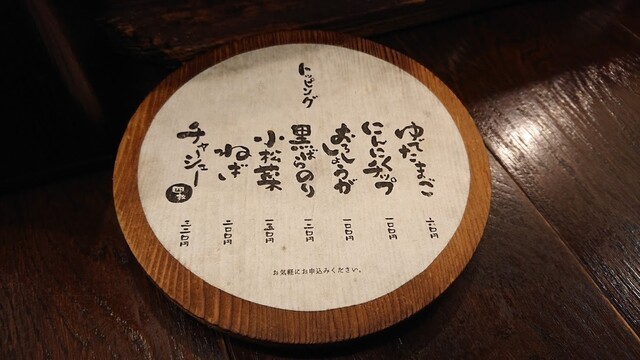 トッピング
ゆでたまご 一六〇円
にんにくチップ 一〇〇円
おろししょうが 一〇〇円
黒ばらのり 一二〇円
小松菜 一五〇円
ねぎ 二〇〇円
チャーシュー 四枚 三二〇円
お気軽にお申込みください。